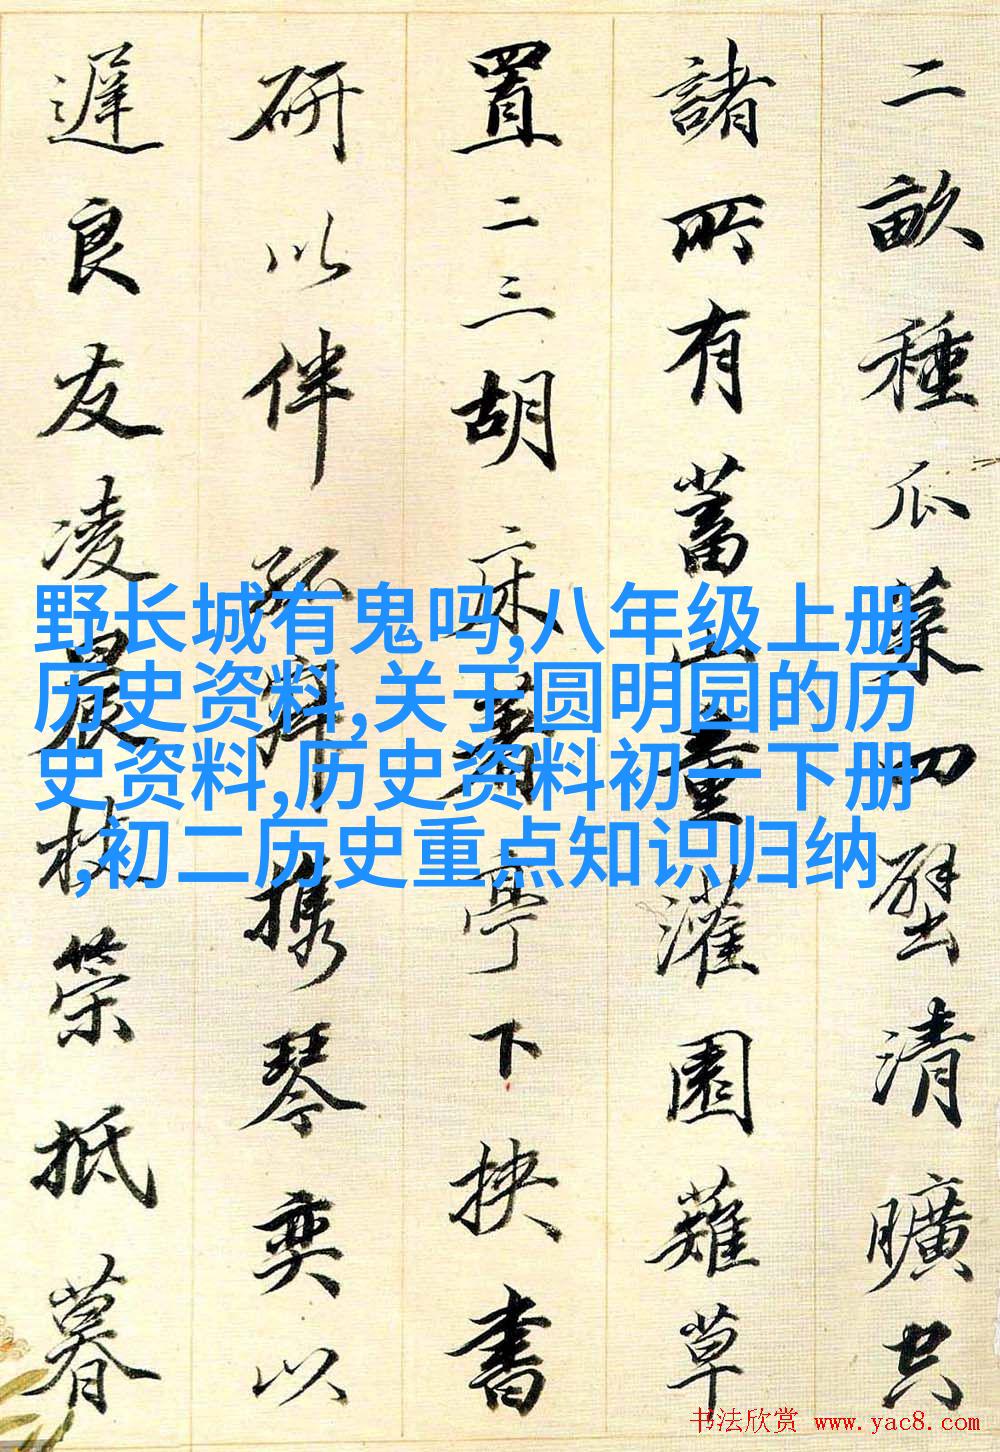 二畝種瓜菜四壁清曠空
諸所有蓄山童灌園薙草
置二三胡床著亭下挟書
研以伴孤寂携琴奕以
遲良友凌晨杖策抵暮
野长城有鬼吗,八年级上册
历史资料,关于圆明园的历
史资料,历史资料初一下册
,初二历史重点知识归纳
书法欣赏 www.yac8.com